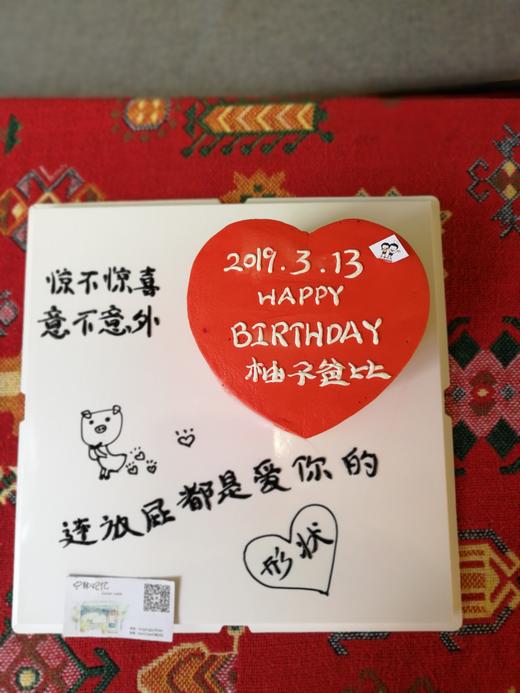 惊不惊喜
意不意外
2019.3.13
HAPPY
BIRTHDAY
柚子爸比
连放屁都是爱你的
形状